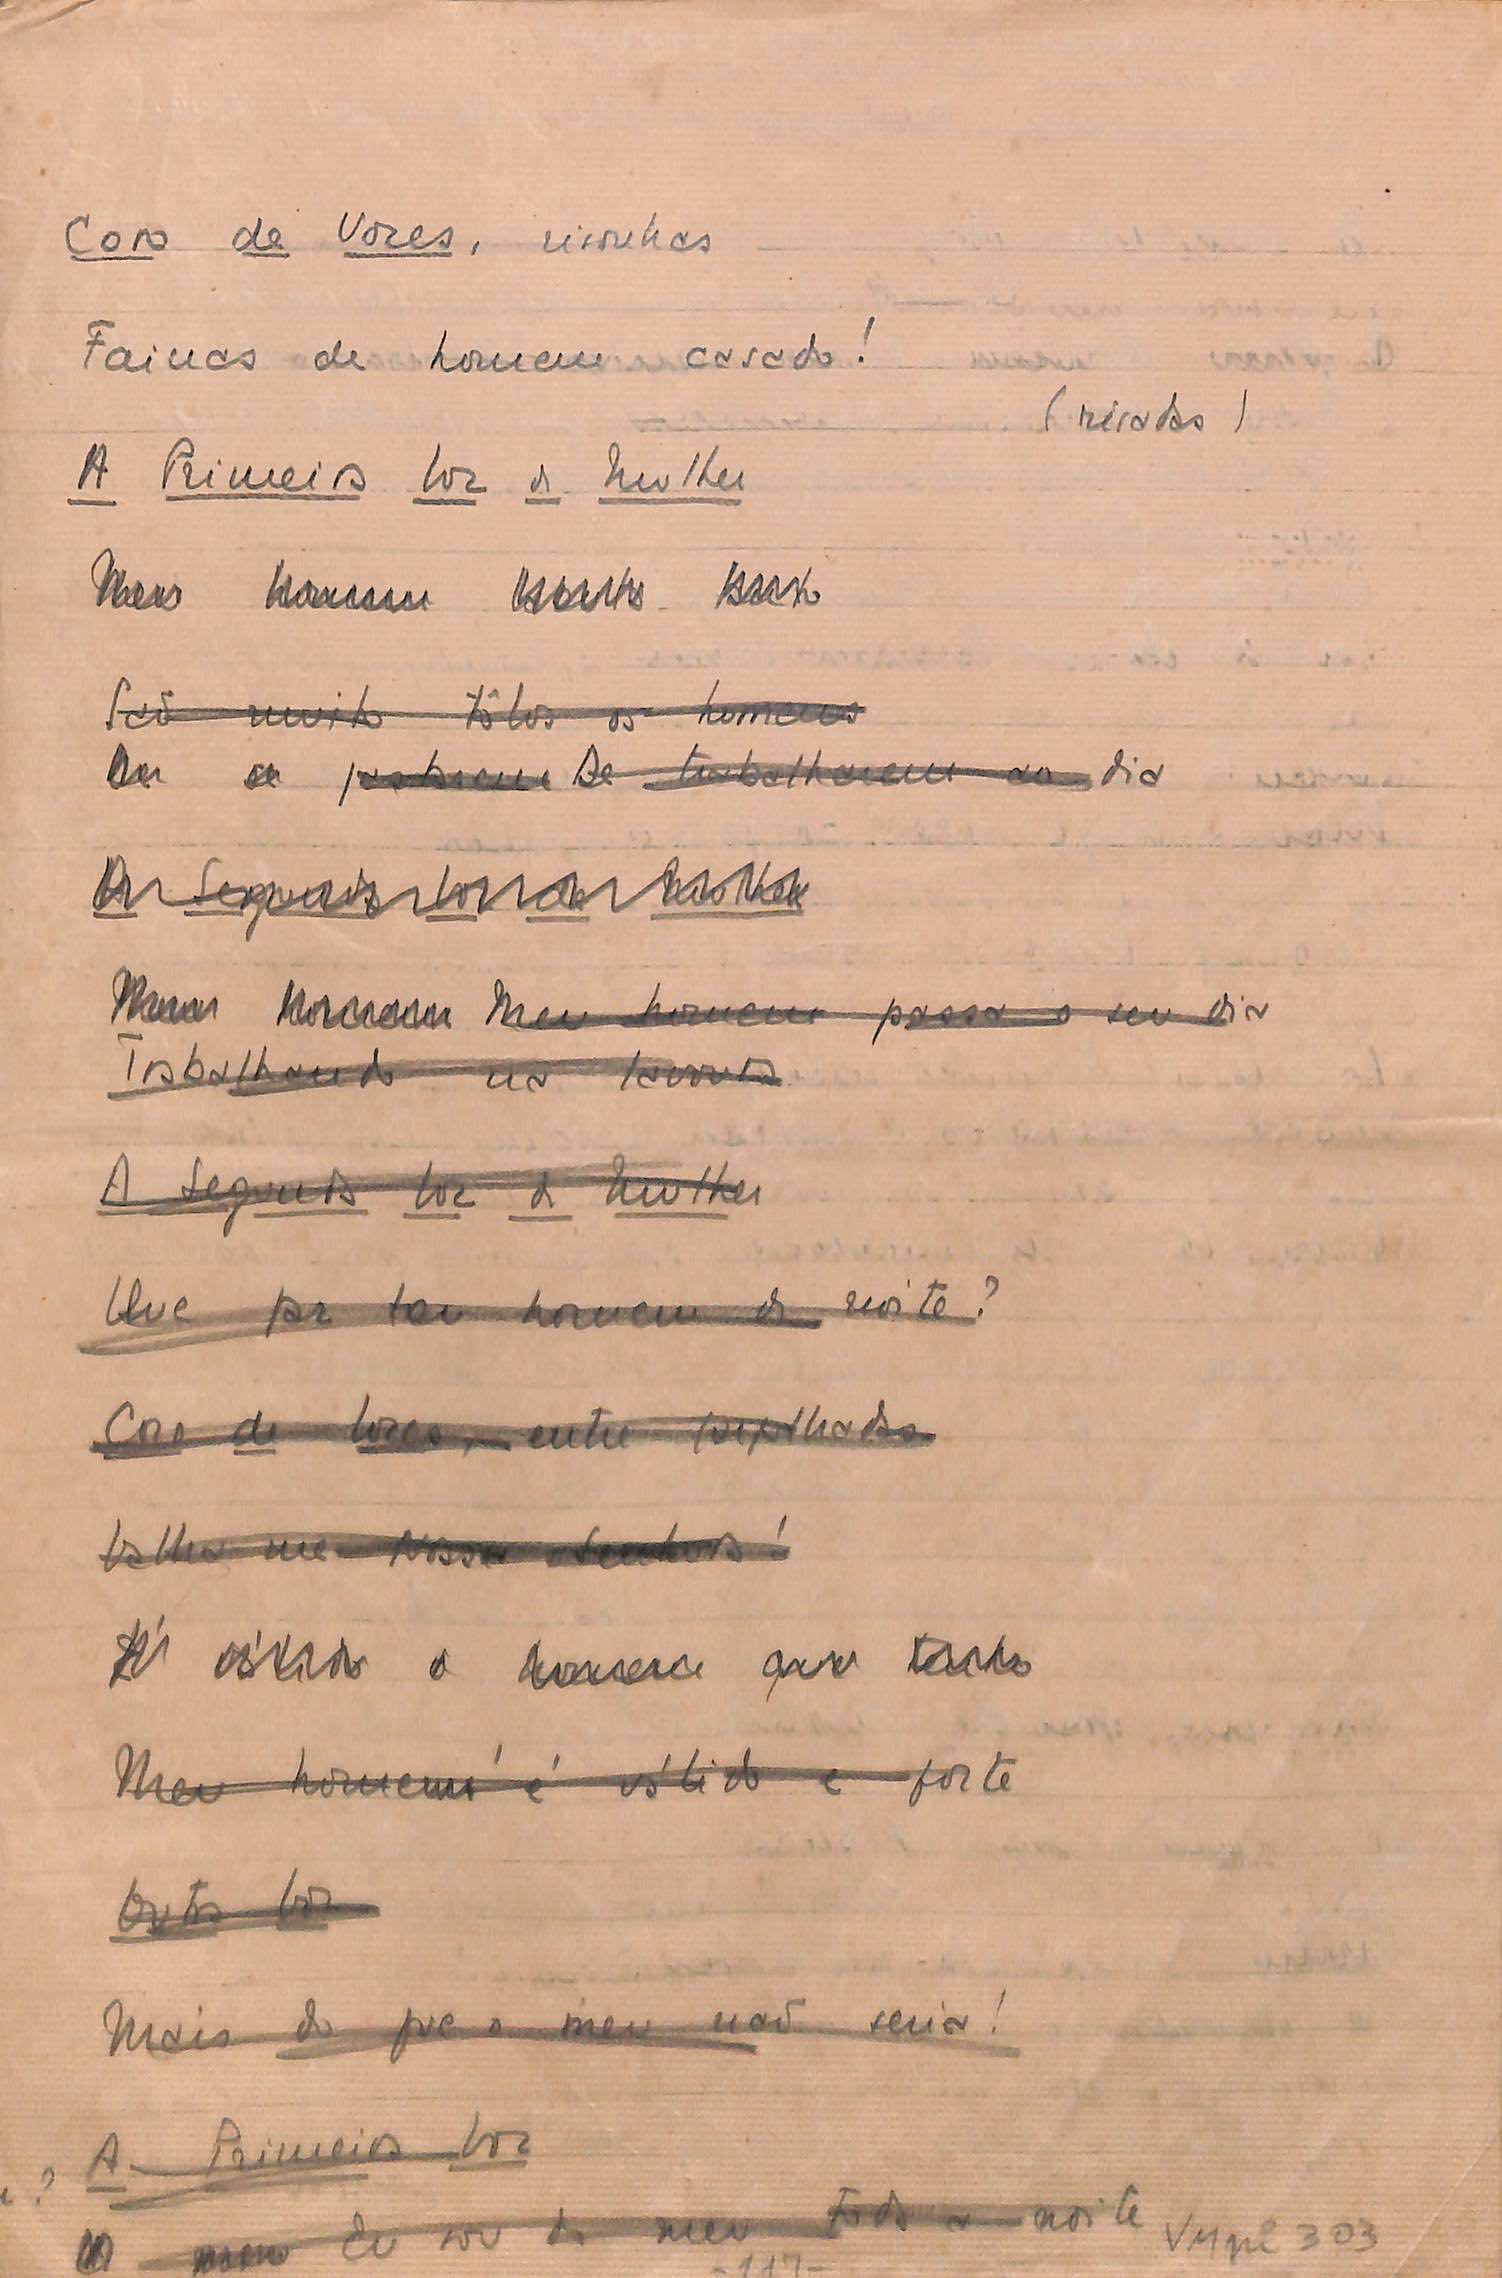 Coro de Vozes, risonhas
Fainas de homem casado!
(risadas)
A Primeira Voz de Mulher
Meu homem
São muito tôlos os homens
De trabalharem ao dia
A Segunda Voz de Mulher
Meu homem Meu homem passa o seu dia
Trabalhando na lavoura
A Segunda Voz de Mulher
Que faz teu homem de noite?
Coro de Vozes, entre gargalhadas
Valha-me Nossa Senhora!
É válido o homem que tenho
Meu homem é válido e forte
Outra Voz
Mais do que o meu não seria!
A Primeira Voz
Eu sou do meu toda a noite
VMpi 303
-117-